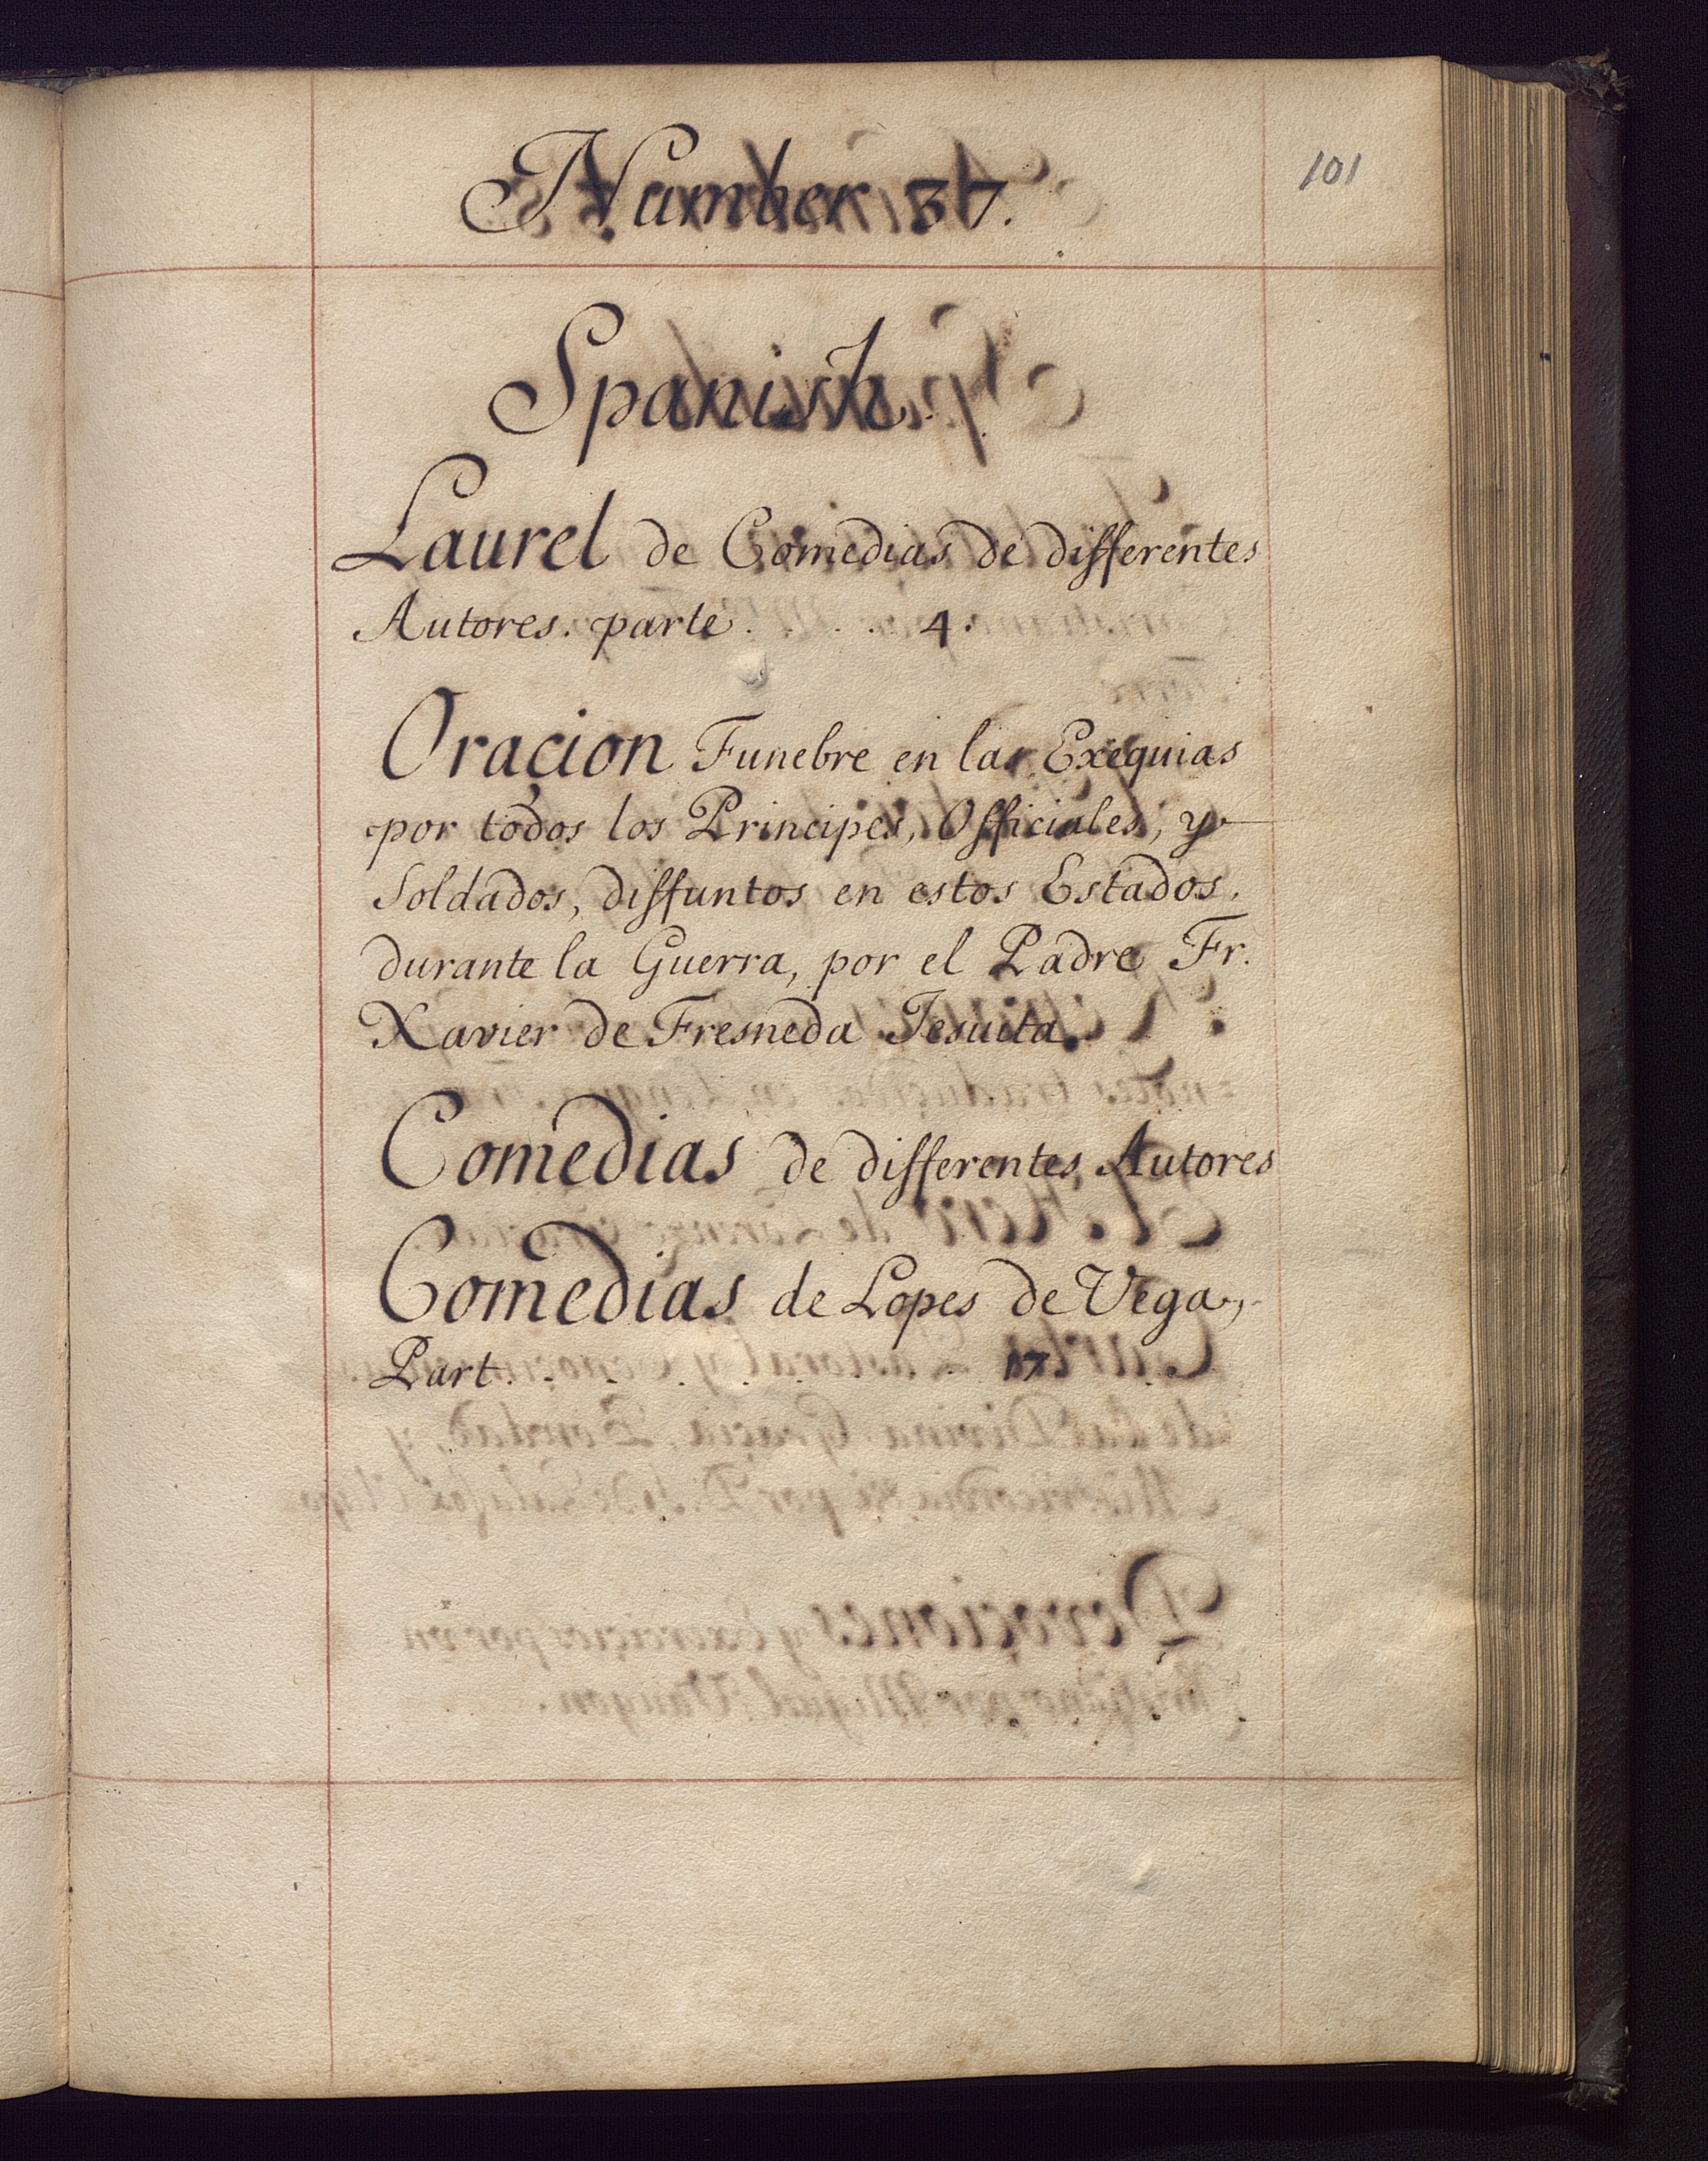 101
Number 37.
Spanish.
Laurel de Comedias de differentes
Autores. parte. . . . . 4.
Oraçion Funebre en las Exequias
por todos los Principes, Officiales, y
Soldados, diffuntos en estos Estados.
durante la Guerra, por el Padre Fr.
Xavier de Fresneda Jesuita.
Comedias de differentes Autores
Comedias de Lopes de Vega,
Part. . . . . . . . 17.